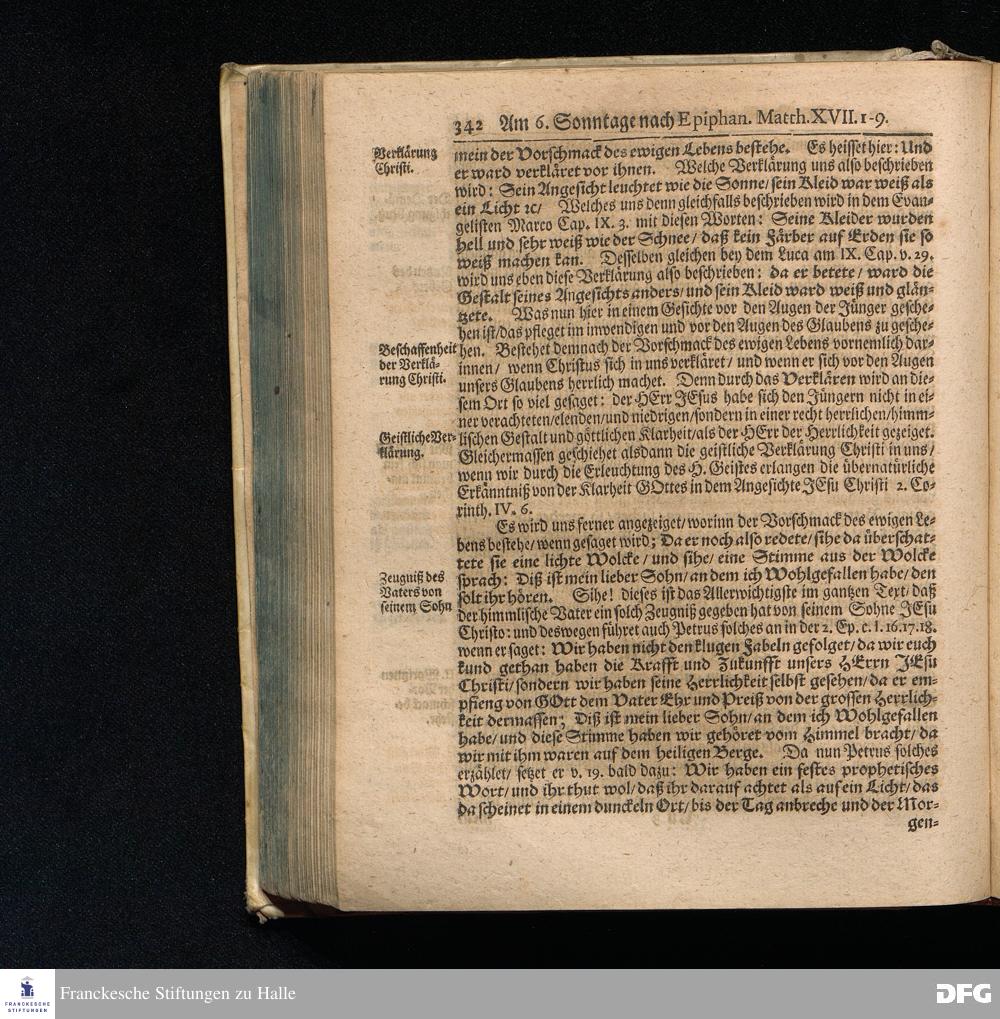 342 Am 6. Sonntage nach Epiphan. Matth. XVII. 1-9.
Verklärung
Christi.
mein der Vorschmack des ewigen Lebens bestehe. Es heisset hier: Und
er ward verkläret vor ihnen. Welche Verklärung uns also beschrieben
wird: Sein Angesicht leuchtet wie die Sonne/ sein Kleid war weiß als
ein Licht ꝛc/ Welches uns denn gleichfalls beschrieben wird in dem Evan-
gelisten Marco Cap. IX. 3. mit diesen Worten: Seine Kleider wurden
hell und sehr weiß wie der Schnee/ daß kein Färber auf Erden sie so
weiß machen kan. Desselben gleichen bey dem Luca am IX. Cap. v. 29.
wird uns eben diese Verklärung also beschrieben: da er betete/ ward die
Gestalt seines Angesichts anders/ und sein Kleid ward weiß und glän-
tzete. Was nun hier in einem Gesichte vor den Augen der Jünger gesche-
hen ist/ das pfleget im inwendigen und vor den Augen des Glaubens zu gesche-
Beschaffenheit
der Verklä-
rung Christi.
hen. Bestehet demnach der Vorschmack des ewigen Lebens vornemlich dar-
innen/ wenn Christus sich in uns verkläret/ und wenn er sich vor den Augen
unsers Glaubens herrlich machet. Denn durch das Verklären wird an die-
sem Ort so viel gesaget: der HErr JEsus habe sich den Jüngern nicht in ei-
ner verachteten/ elenden/ und niedrigen/ sondern in einer recht herrlichen/ himm-
Geistliche Ver-
klärung.
lischen Gestalt und göttlichen Klarheit/ als der HErr der Herrlichkeit gezeiget.
Gleichermassen geschiehet alsdann die geistliche Verklärung Christi in uns/
wenn wir durch die Erleuchtung des H. Geistes erlangen die übernatürliche
Erkänntniß von der Klarheit GOttes in dem Angesichte JEsu Christi 2. Co-
rinth. IV. 6.
Es wird uns ferner angezeiget/ worinn der Vorschmack des ewigen Le-
bens bestehe/ wenn gesaget wird; Da er noch also redete/ sihe da überschat-
tete sie eine lichte Wolcke/ und sihe/ eine Stimme aus der Wolcke
Zeugniß des
Vaters von
seinem Sohn
sprach: Diß ist mein lieber Sohn/ an dem ich Wohlgefallen habe/ den
solt ihr hören. Sihe! dieses ist das Allerwichtigste im gantzen Text/ daß
der himmlische Vater ein solch Zeugniß gegeben hat von seinem Sohne JEsu
Christo: und deswegen führet auch Petrus solches an in der 2. Ep. c. I. 16. 17. 18.
wenn er saget: Wir haben nicht den klugen Fabeln gefolget/ da wir euch
kund gethan haben die Krafft und Zukunfft unsers HErrn JEsu
Christi/ sondern wir haben seine Herrlichkeit selbst gesehen/ da er em-
pfieng von GOtt dem Vater Ehr und Preiß von der grossen Herrlich-
keit dermassen; Diß ist mein lieber Sohn/ an dem ich Wohlgefallen
habe/ und diese Stimme haben wir gehöret vom Himmel bracht/ da
wir mit ihm waren auf dem heiligen Berge. Da nun Petrus solches
erzählet/ setzet er v. 19. bald dazu: Wir haben ein festes prophetisches
Wort/ und ihr thut wol/ daß ihr darauf achtet als auf ein Licht/ das
da scheinet in einem dunckeln Ort/ bis der Tag anbreche und der Mor-
gen-
FRANCKESCHE
STIFTUNGEN
Franckesche Stiftungen zu Halle
DFG